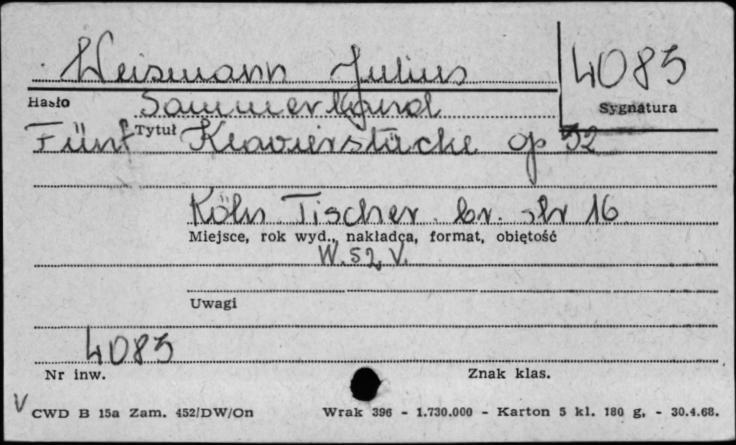 Weismann Julius
4085
Hasło
Sommerland
Sygnatura
Tytuł
Fünf Klavierstücke op 32
Köln Tischer br. str 16
Miejsce, rok wyd., nakładca, format, obiętość
W. 52 V.
Uwagi
4085
Nr inw.
Znak klas.
V CWD B 15a Zam. 452/DW/On
Wrak 396 - 1.730.000 - Karton 5 kl. 180 g. - 30.4.68.